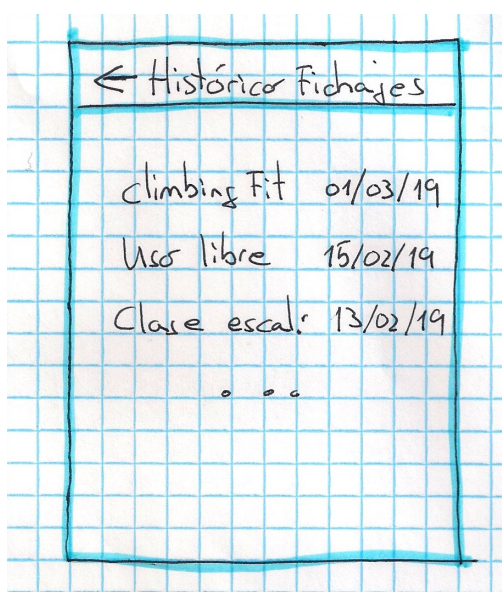 ← Histórico Fichajes
Climbing Fit 01/03/19
Uso libre 15/02/19
Clase escal. 13/02/19
...